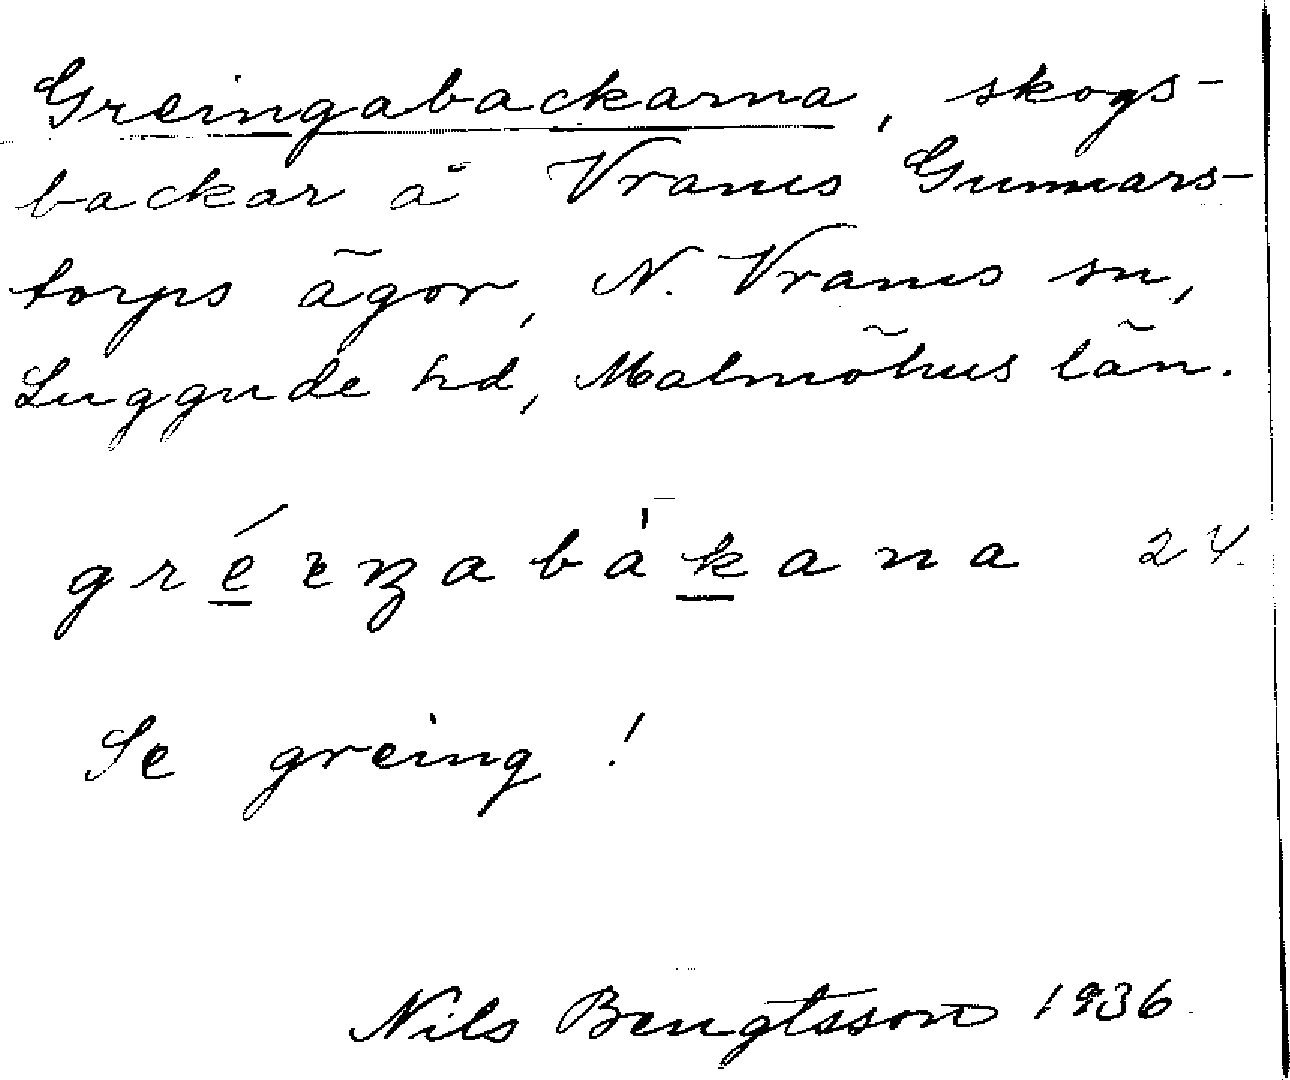 Greingabackarna, skogs-
backar å Vrams Gunnars-
torps ägor, N. Vrams sn,
Luggude hd, Malmöhus län.
24.
Se greing!
Nils Bengtsson 1936